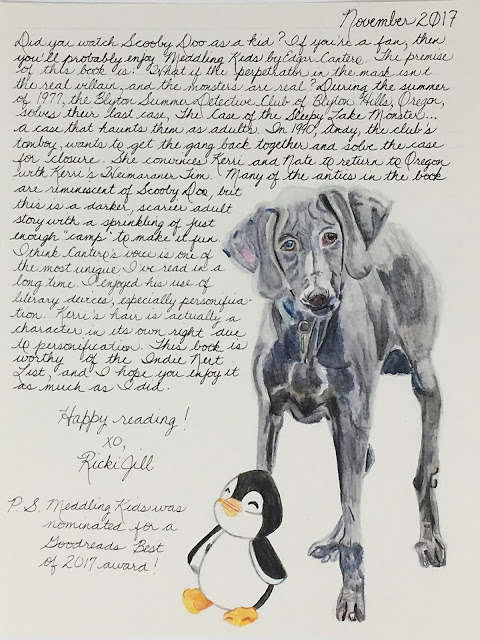 November 2017
Did you watch Scooby Doo as a kid? If you're a fan, then
you'll probably enjoy Meddling Kids by Edgar Cantero. The premise
of this book is: "What if the perpetrator in the mask isn't
the real villain, and the monsters are real? During the summer
of 1977, the Blyton Summer Detective Club of Blyton Hills, Oregon,
solves their last case, The Case of the Sleepy Lake Monster...
a case that haunts them as adults. In 1990, Andy, the club's
tomboy, wants to get the gang back together and solve the case
for closure. She convinces Kerri and Nate to return to Oregon
with Kerri's Weimaraner Tim. Many of the antics in the book
are reminiscent of Scooby Doo, but
this is a darker, scarier adult
story with a sprinkling of just
enough "camp" to make it fun.
I think Cantero's voice is one of
the most unique I've read in a
long time. I enjoyed his use of
literary devices, especially personifica-
tion. Kerri's hair is actually a
character in its own right due
to personification. This book is
worthy of the Indie Next
List, and I hope you enjoy it
as much as I did.
Happy reading!
XO,
Ricki Jill
P.S. Meddling Kids was
nominated for a
Goodreads Best
of 2017 award!